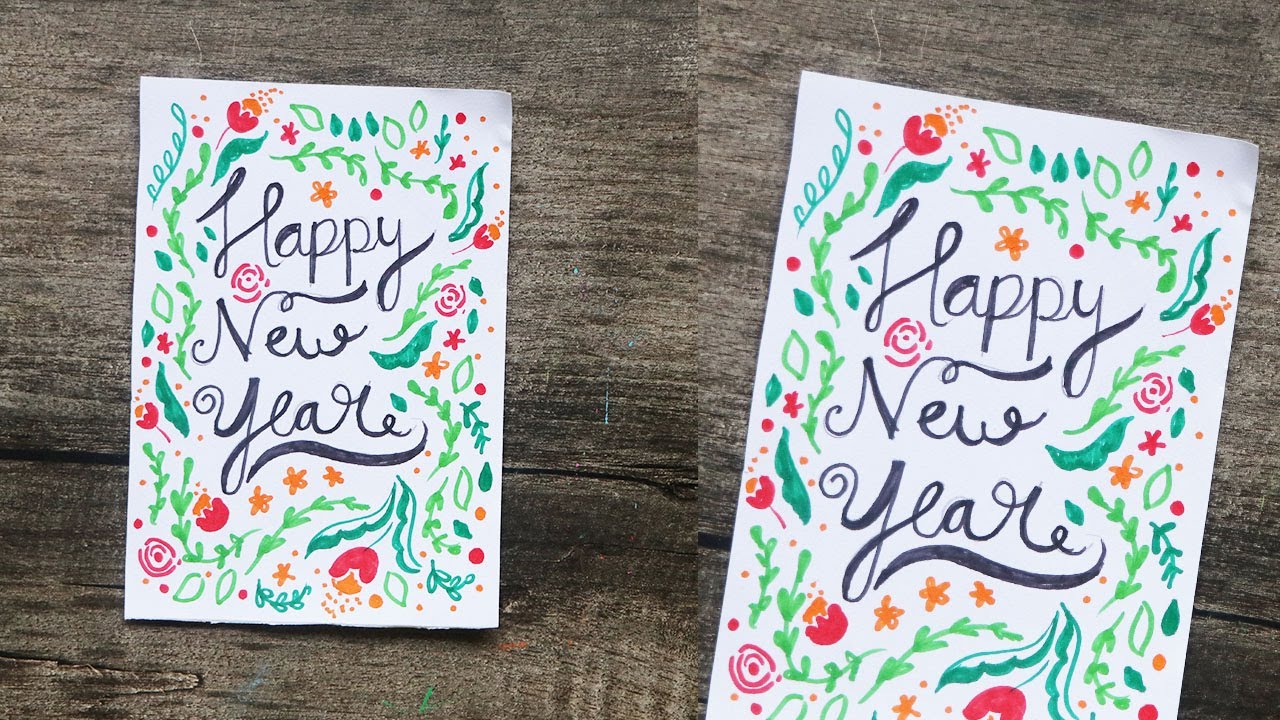 Happy
New
Year
Happy
New
Year